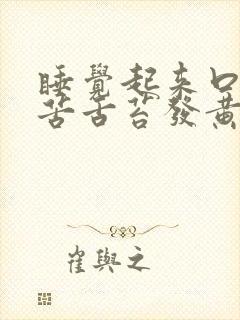 睡覺起來口
苦舌苔發黃
崔與之